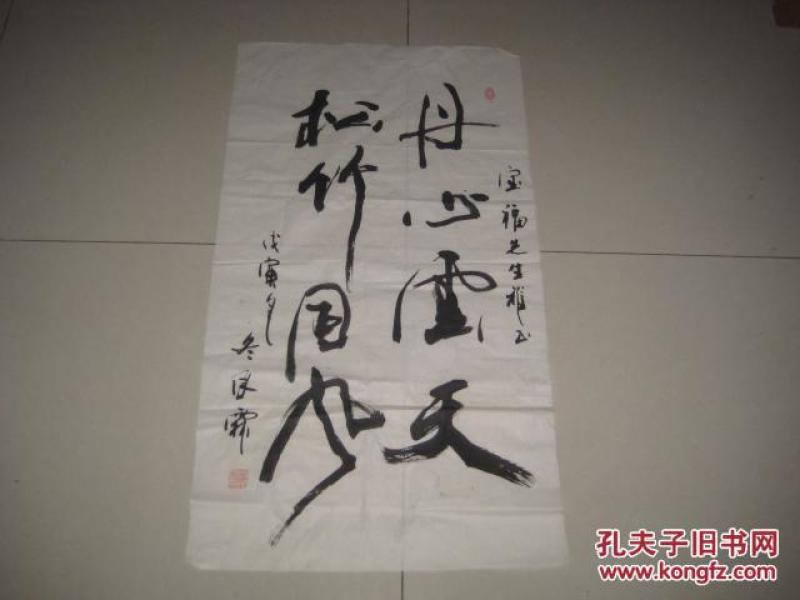 宝福先生雅正
丹心雲天
松竹風
戊寅年
冬 霖
孔夫子旧书网
www.kongfz.com